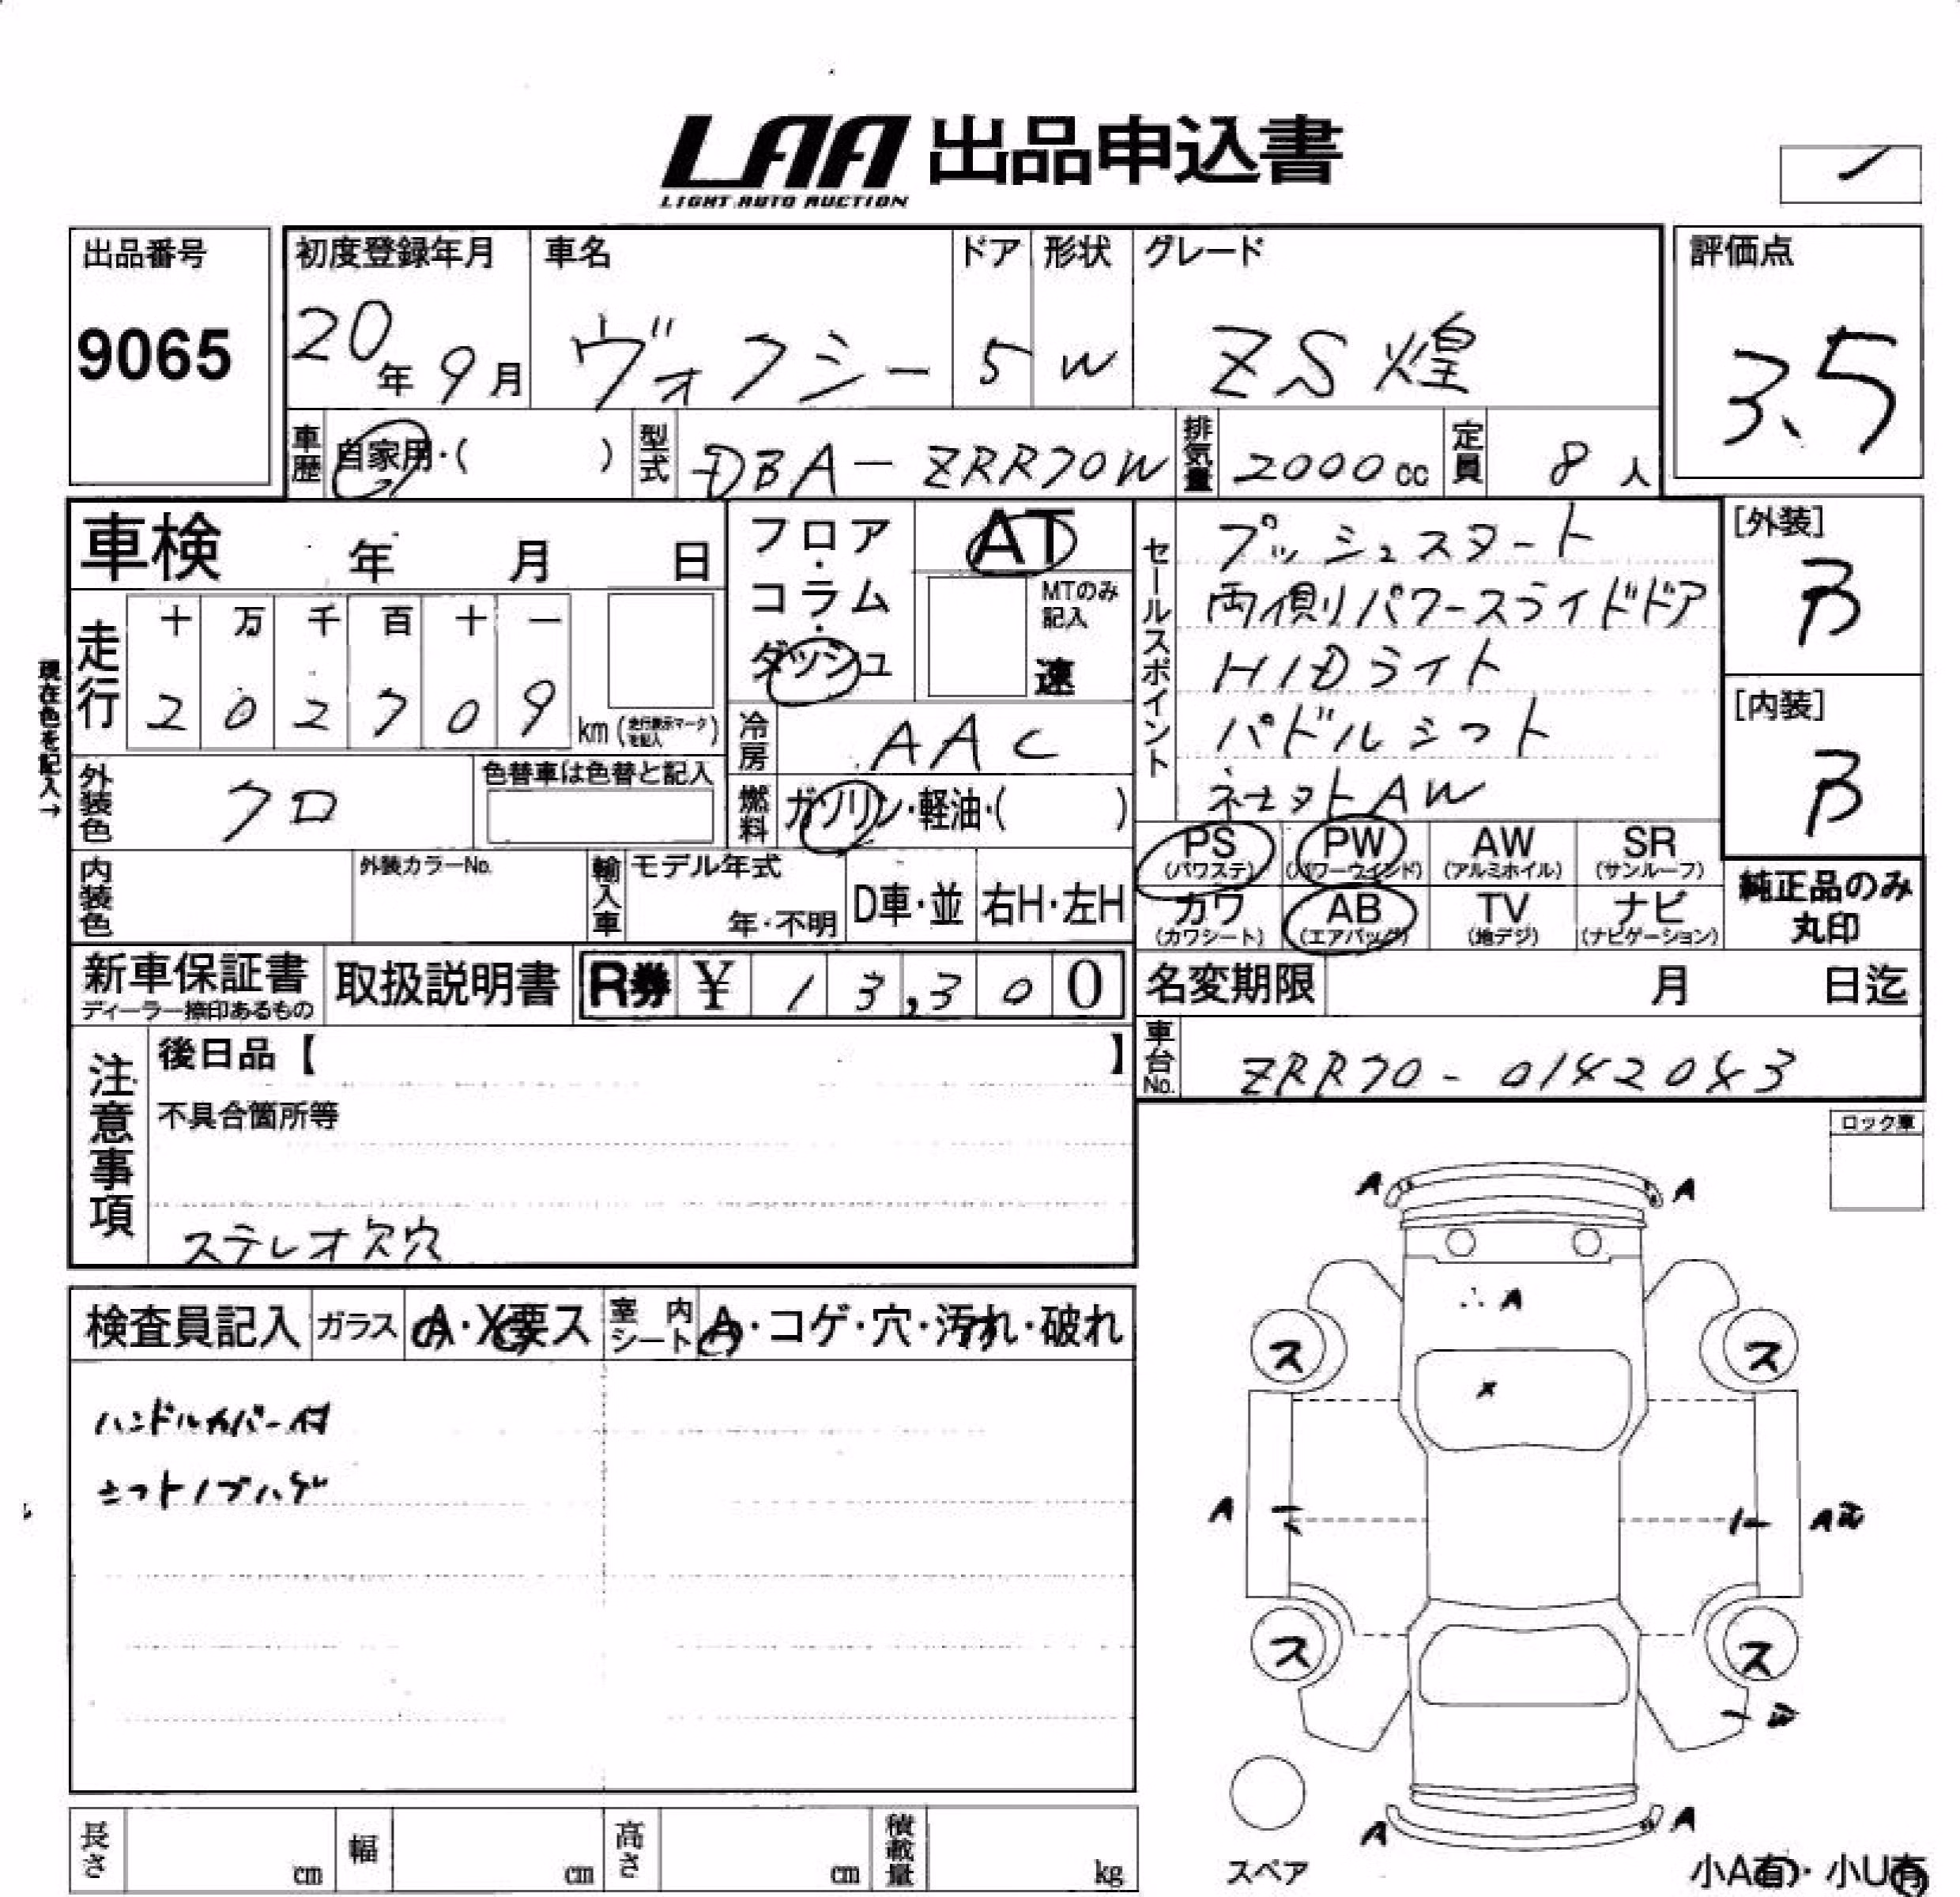 LAA 出品申込書
LIGHT AUTO AUCTION
出品番号
9065
初度登録年月
20年 9月
車名
ヴォクシー
ドア
5
形状
W
グレード
ZS 煌
評価点
3.5
車歴
自家用・( )
型式
DBA-ZRR70W
排気量
2000cc
定員
8人
車検 年 月 日
走行
十 万 千 百 十 一
2 0 2 7 0 9
km (走行表示マークを記入)
現在色を記入→
外装色
クロ
色替車は色替と記入
内装色
外装カラーNo.
フロア・コラム・ダッシュ
AT
MTのみ記入
速
冷房
AAC
燃料
ガソリン・軽油・( )
輸入車
モデル年式
年・不明
D車・並
右H・左H
セールスポイント
プッシュスタート
両側パワースライドドア
HIDライト
パドルシフト
AW
[外装]
B
[内装]
B
PS
(パワステ)
PW
(パワーウインド)
AW
(アルミホイル)
SR
(サンルーフ)
カワ
(カワシート)
AB
(エアバッグ)
TV
(地デジ)
ナビ
(ナビゲーション)
純正品のみ
丸印
新車保証書
ディーラー捺印あるもの
取扱説明書
R券 ¥ 1 3,3 0 0
名変期限 月 日迄
車台No.
ZRR70-0142043
注意事項
後日品【 】
不具合箇所等
ステレオ欠穴
ロック車
検査員記入
ガラス
A・X要ス
室内シート
A・コゲ・穴・汚れ・破れ
ハンドルカバー付
シフトノブハゲ
A
A
A
ス
ス
X
A
A
ス
ス
A
A
スペア
小A有・小U有
長さ cm
幅 cm
高さ cm
積載量 kg